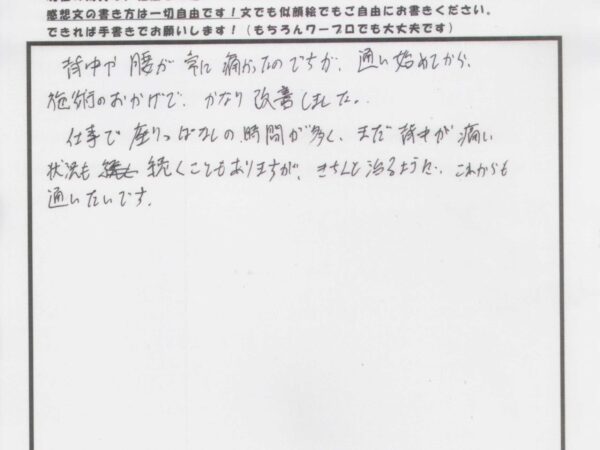 感想文の書き方は一切自由です！文でも似顔絵でもご自由にお書きください。
できれば手書きでお願いします！（もちろんワープロでも大丈夫です）
背中や腰が常に痛かったのですが、通い始めてから、
施術のおかげで、かなり改善しました。
仕事で座りっぱなしの時間が多く、まだ背中が痛い
状況も続くこともありますが、きちんと治るように、これからも
通いたいです。